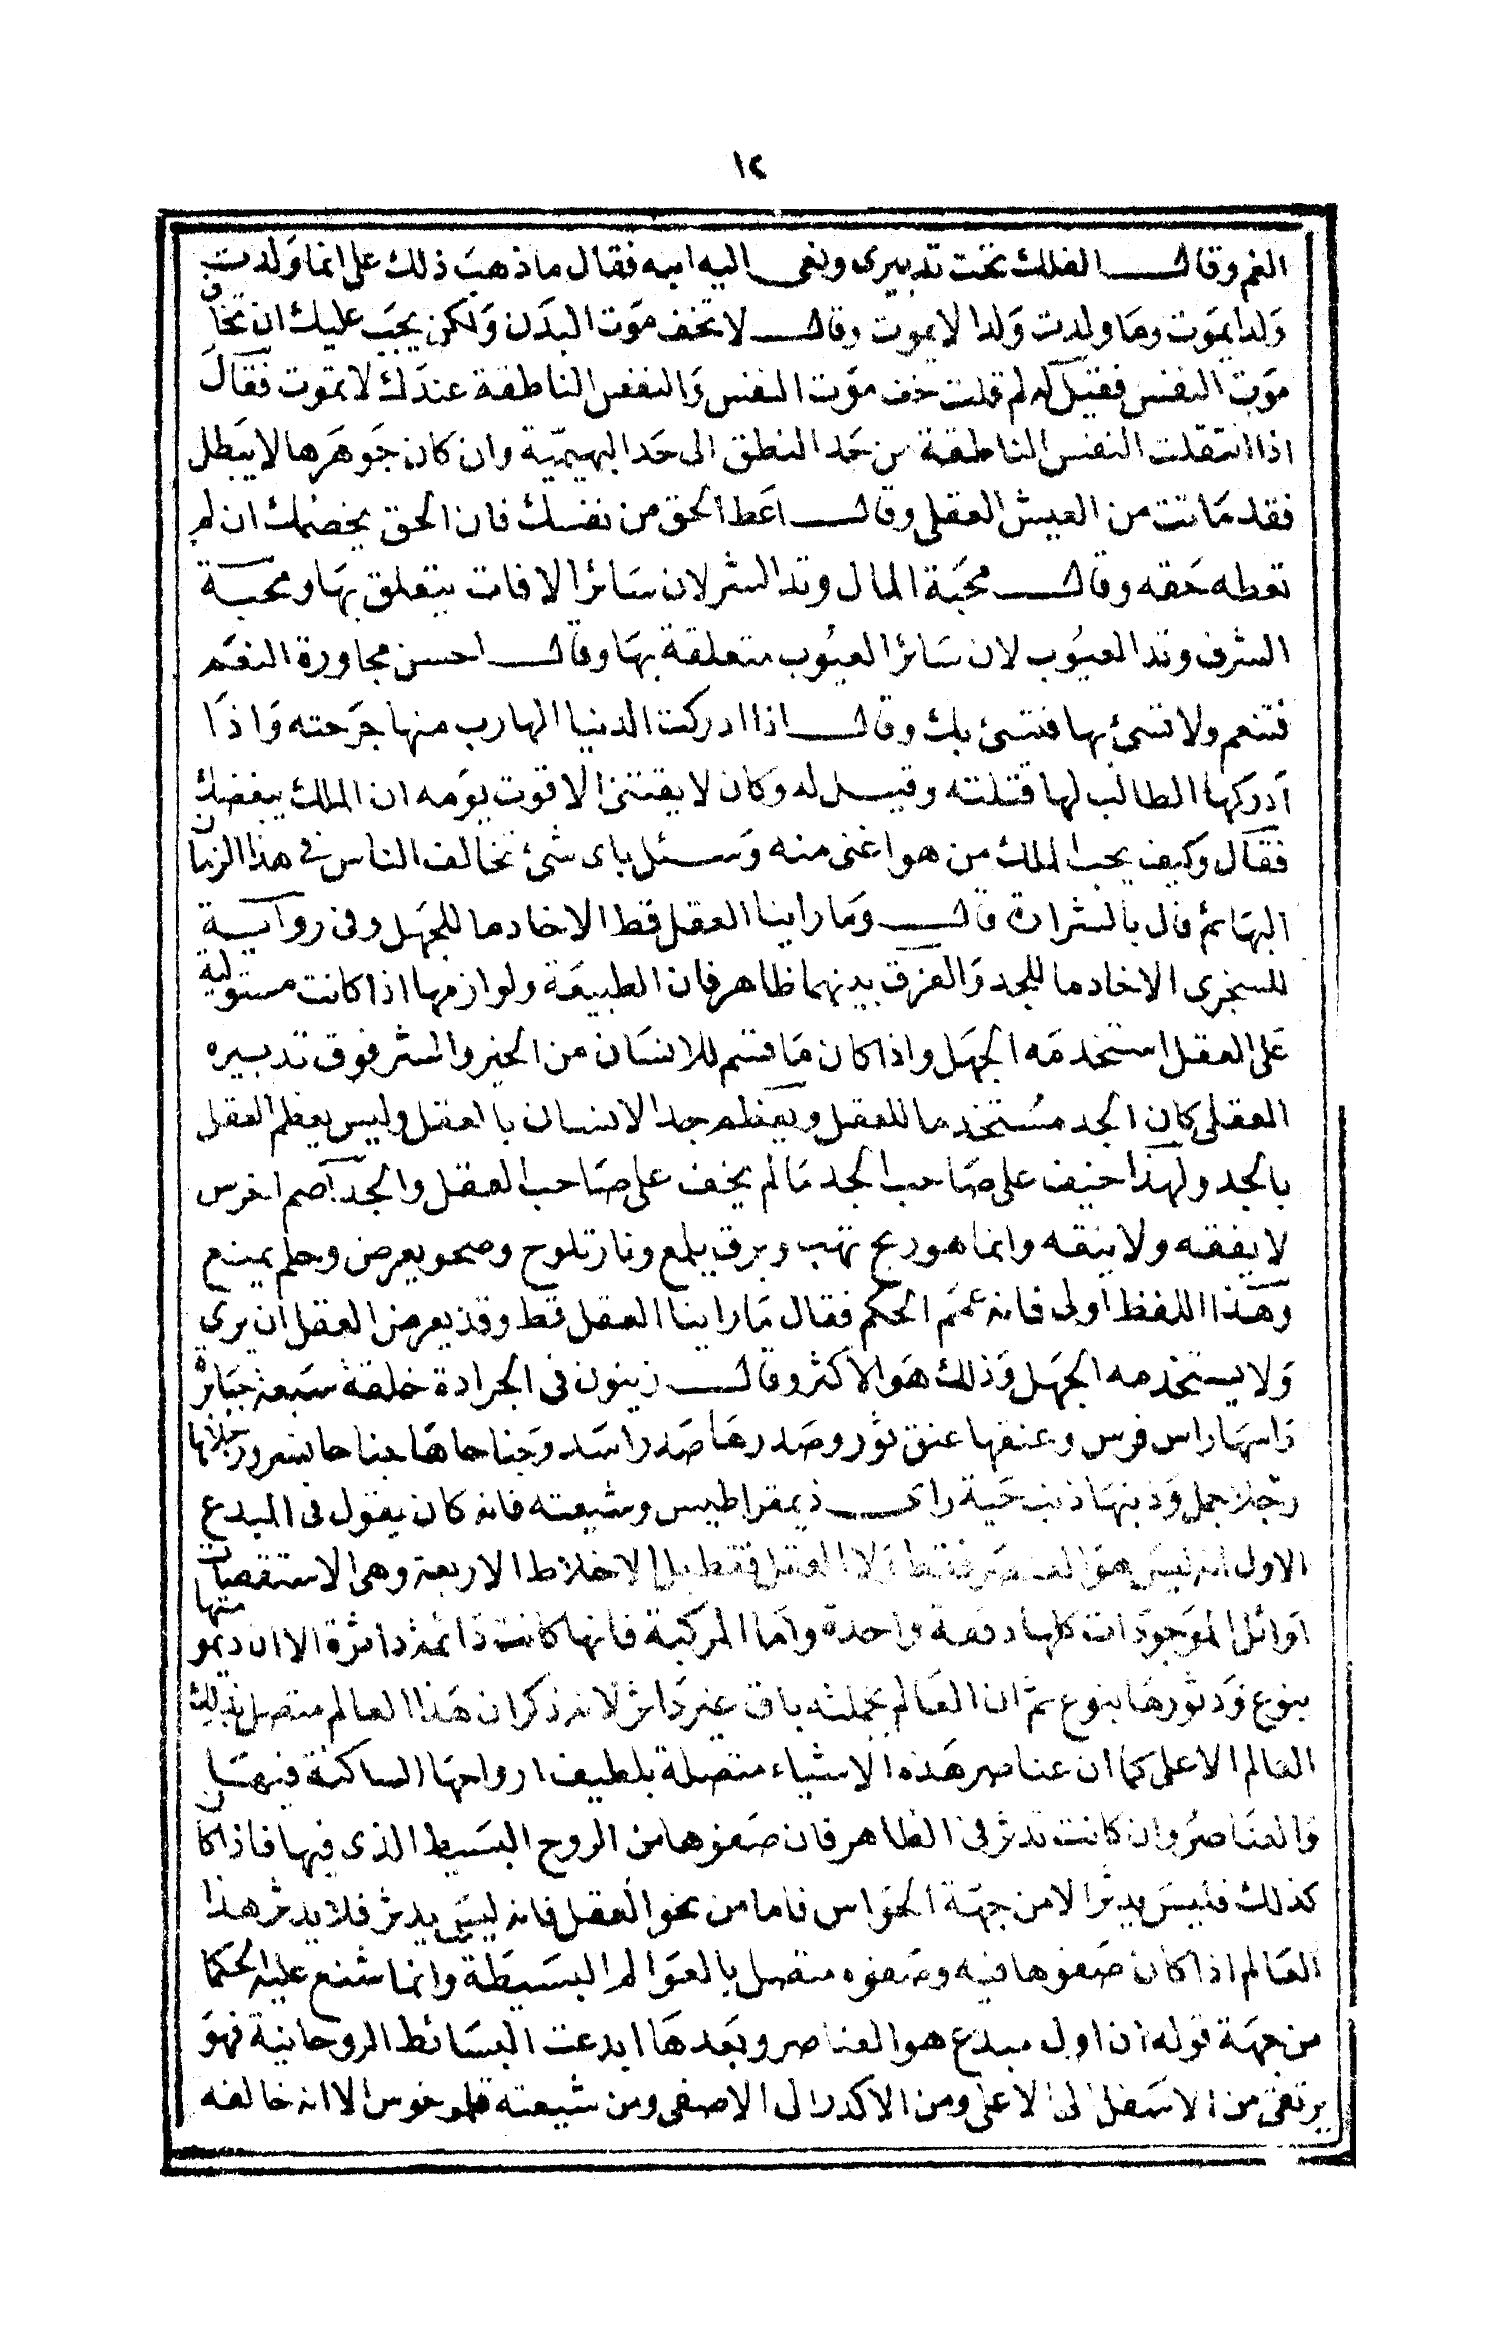 ١٢
الغم وقال الفلك تحت تدبيرى ونعى اليه ابنه فقال ما ذهب ذلك على انما ولدت
ولدا يموت وما ولدت ولدا لا يموت وقال لا تخف موت البدن ولكن يجب عليك ان تخاف
موت النفس فقيل له لم قلت خف موت النفس والنفس الناطقة عندك لا تموت فقال
اذا انتقلت النفس الناطقة من حد النطق الى حد البهيمية وان كان جوهرها لا يبطل
فقد ماتت من العيش العقلى وقال اعط الحق من نفسك فان الحق يخصمك ان لم
تعطه حقه وقال محبة المال وتد الشر لان سائر الافات يتعلق بها ومحبة
الشرف وتد العيوب لان سائر العيوب متعلقة بها وقال احسن مجاورة النعم
فتنعم ولا تسئ بها فتسئ بك وقال اذا ادركت الدنيا الهارب منها جرحته واذا
ادركها الطالب لها قتلته وقيل له وكان لا يقتنى الا قوت يومه ان الملك يبغضك
فقال وكيف يحب الملك من هو اغنى منه وسئل باى شئ تخالف الناس فى هذا الزمان
البهائم قال بالشرارة قال وما راينا العقل قط الا خادما للجهل وفى رواية
للسجزى الا خادما للجد والفرق بينهما ظاهر فان الطبيعة ولوازمها اذا كانت مستولية
على العقل استخدمه الجهل واذا كان ما قسم للانسان من الخير والشر فوق تدبيره
العقلى كان الجد مستخدما للعقل ويعظم جد الانسان بالعقل وليس يعظم العقل
بالجد ولهذا خيف على صاحب الجد ما لم يخف على صاحب العقل والجد اصم اخرس
لا يفقه ولا ينقه وانما هو ريح تهب وبرق يلمع ونار تلوح وصحو يعرض وحلم يمنع
وهذا اللفظ اولى فانه عمم الحكم فقال ما راينا العقل قط وقد يعرض العقل ان يرى
ولا يستخدمه الجهل وذلك هو الاكثر وقال زينون فى الجرادة خلقة سبعة جبابرة
راسها راس فرس وعنقها عنق ثور وصدرها صدر اسد وجناحاها جناحا نسر ورجلاها
رجلا جمل وذنبها ذنب حية راى ذيمقراطيس وشيعته فانه كان يقول فى المبدع
الاول انه ليس هو العنصر فقط ولا العقل فقط بل الاخلاط الاربعة وهى الاستقصات
اوائل الموجودات كلها دفعة واحدة واما المركبة فانها كانت دائمة داثرة الا ان ديمومتها
بنوع ودثورها بنوع ثم ان العالم بجملته باق غير داثر لانه ذكر ان هذا العالم متصل بذلك
العالم الاعلى كما ان عناصر هذه الاشياء متصلة بلطيف ارواحها الساكنة فيها
والعناصر وان كانت تدثر فى الظاهر فان صفوها من الروح البسيط الذى فيها فاذا كان
كذلك فليس يدثر الا من جهة الحواس فاما من نحو العقل فانه ليس يدثر فلا يدثر هذا
العالم اذا كان صفوها فيه وصفوه متصل بالعوالم البسيطة وانما شنع عليه الحكما
من جهة قوله ان اول مبدع هو العناصر وبعدها ابدعت البسائط الروحانية فهو
يرتقى من الاسفل الى الاعلى ومن الاكدر الى الاصفى ومن شيعته قلموخوس الا انه خالفه